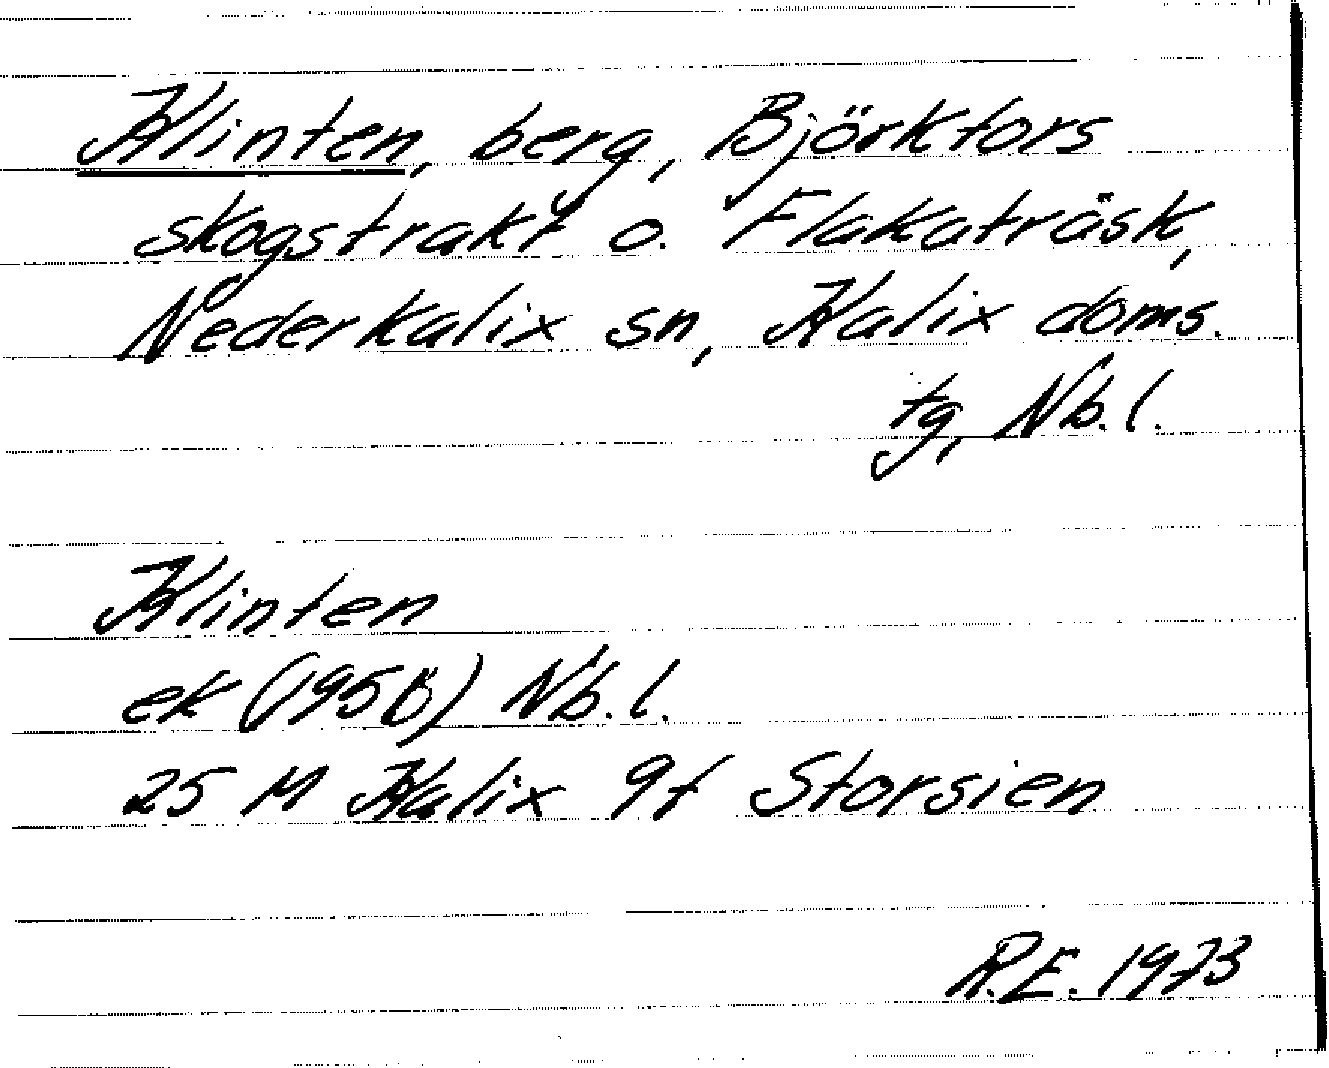 Klinten, berg, Björkfors
skogstrakt o. Flakaträsk,
Nederkalix sn, Kalix doms.
tg, Nb.l.
Klinten
ek (1958) Nb.l.
25 M Kalix 9f Storsien
R.E. 1973